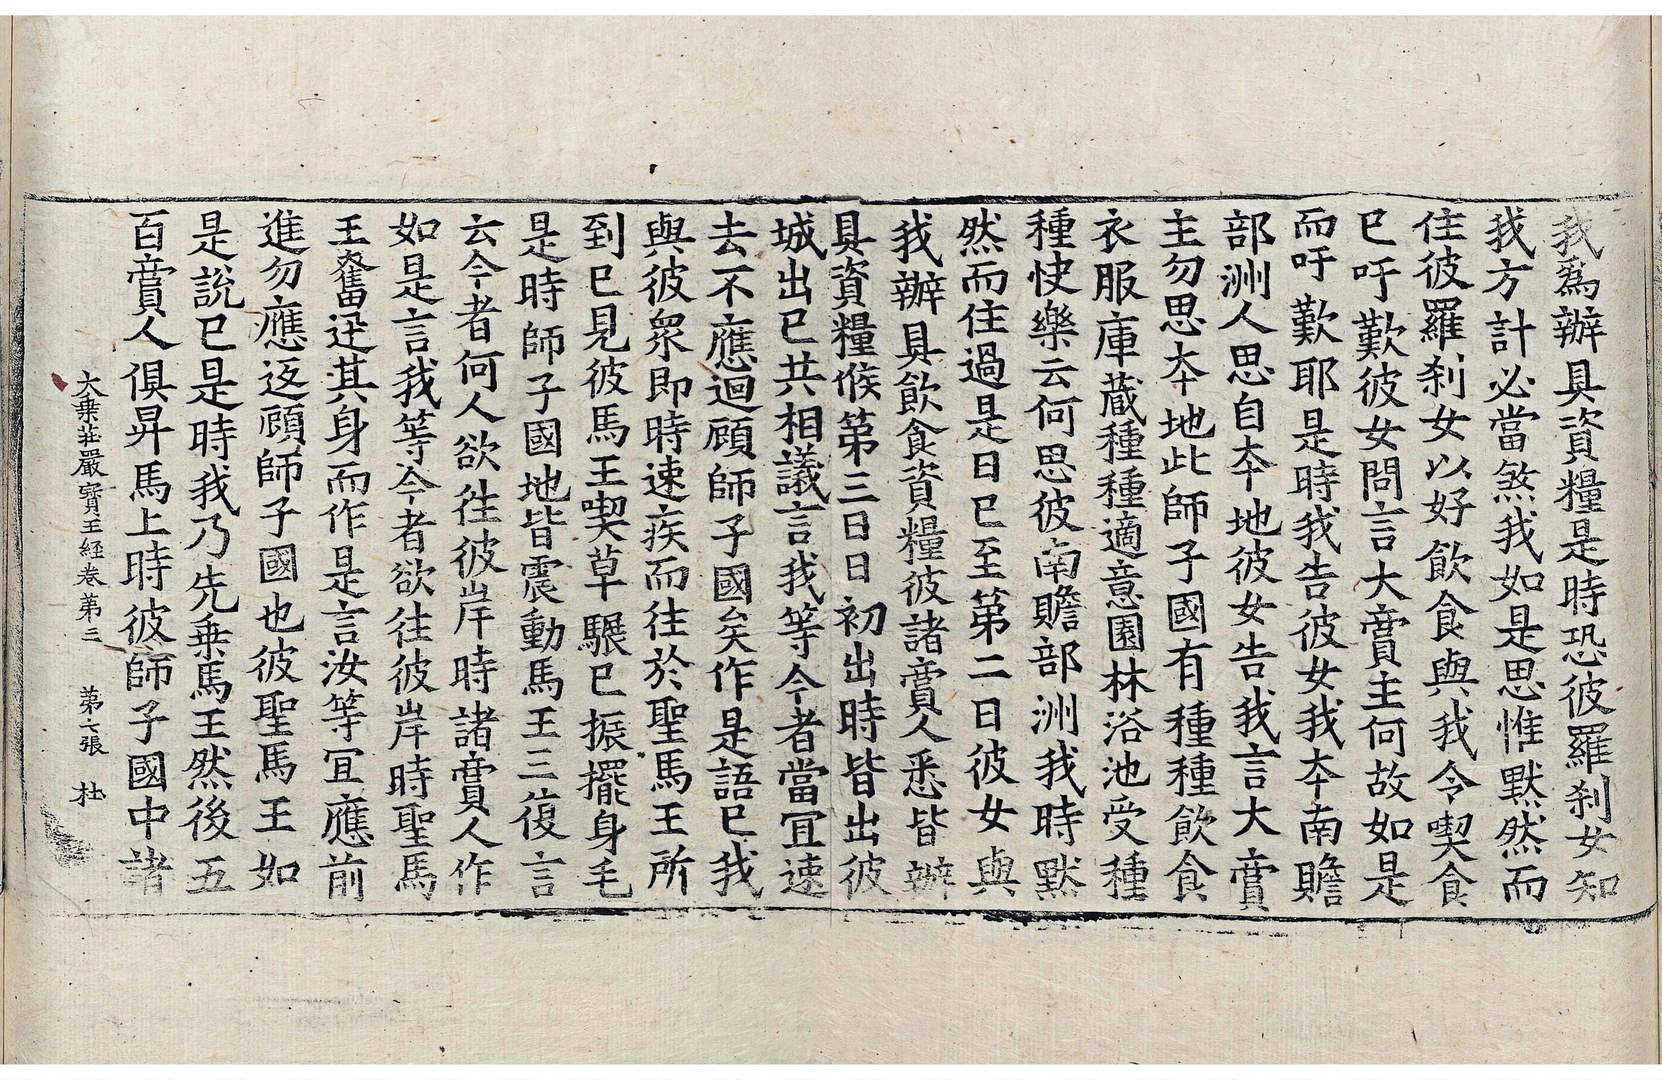 我為辦具資糧是時恐彼羅刹女知
我方計必當煞我如是思惟默然而
住彼羅刹女以好飲食與我令喫食
已吁歎彼女問言大賣主何故如是
而吁歎耶是時我告彼女我夲南贍
部洲人思自夲地彼女告我言大賣
主勿思夲地此師子國有種種飲食
衣服庫蔵種種適意園林浴池受種
種快樂云何思彼南贍部洲我時默
然而住過是日已至第二日彼女與
我辦具飲食資糧彼諸賣人悉皆辦
具資糧候第三日日初出時皆出彼
城出已共相議言我等今者當冝速
去不應迴顧師子國矣作是語已我
與彼衆即時速疾而往於聖馬王所
到已見彼馬王喫草驏已振擺身毛
是時師子國地皆震動馬王三復言
云今者何人欲往彼岸時諸賣人作
如是言我等今者欲往彼岸時聖馬
王奮迅其身而作是言汝等冝應前
進勿應返顧師子國也彼聖馬王如
是說已是時我乃先乗馬王然後五
百賣人俱昇馬上時彼師子國中諸
大乗莊嚴寳王經卷第三 第七張 杜